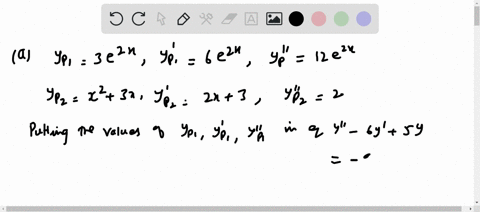 (a) yp1 = 3e^2x, yp1' = 6e^2x, yp'' = 12e^2x
yp2 = x²+3x, y'p2 = 2x+3, y''p2 = 2
Putting the values of yp1, y'p1, y''p1 in eq y''-6y'+5y
= -